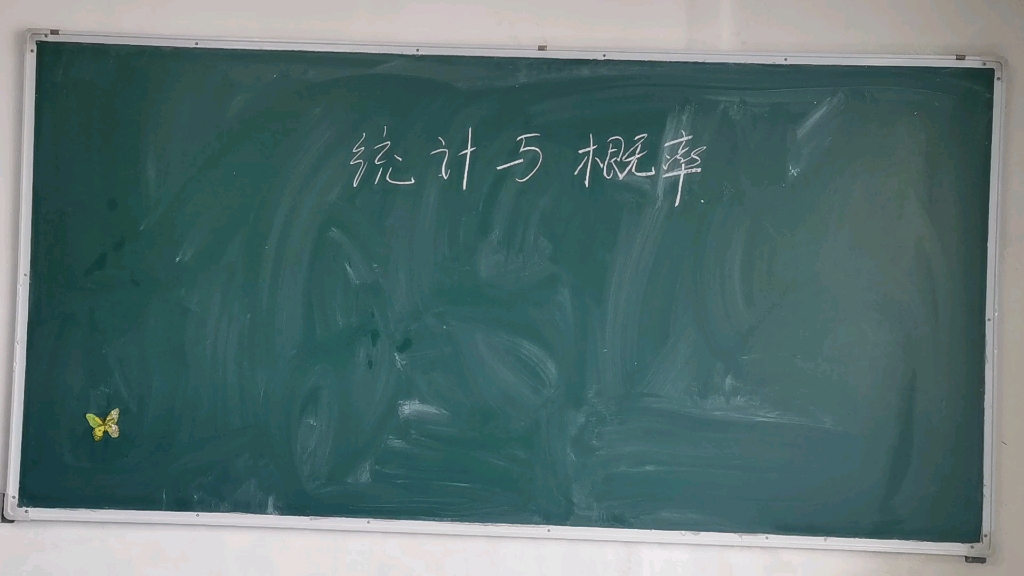 统计与概率